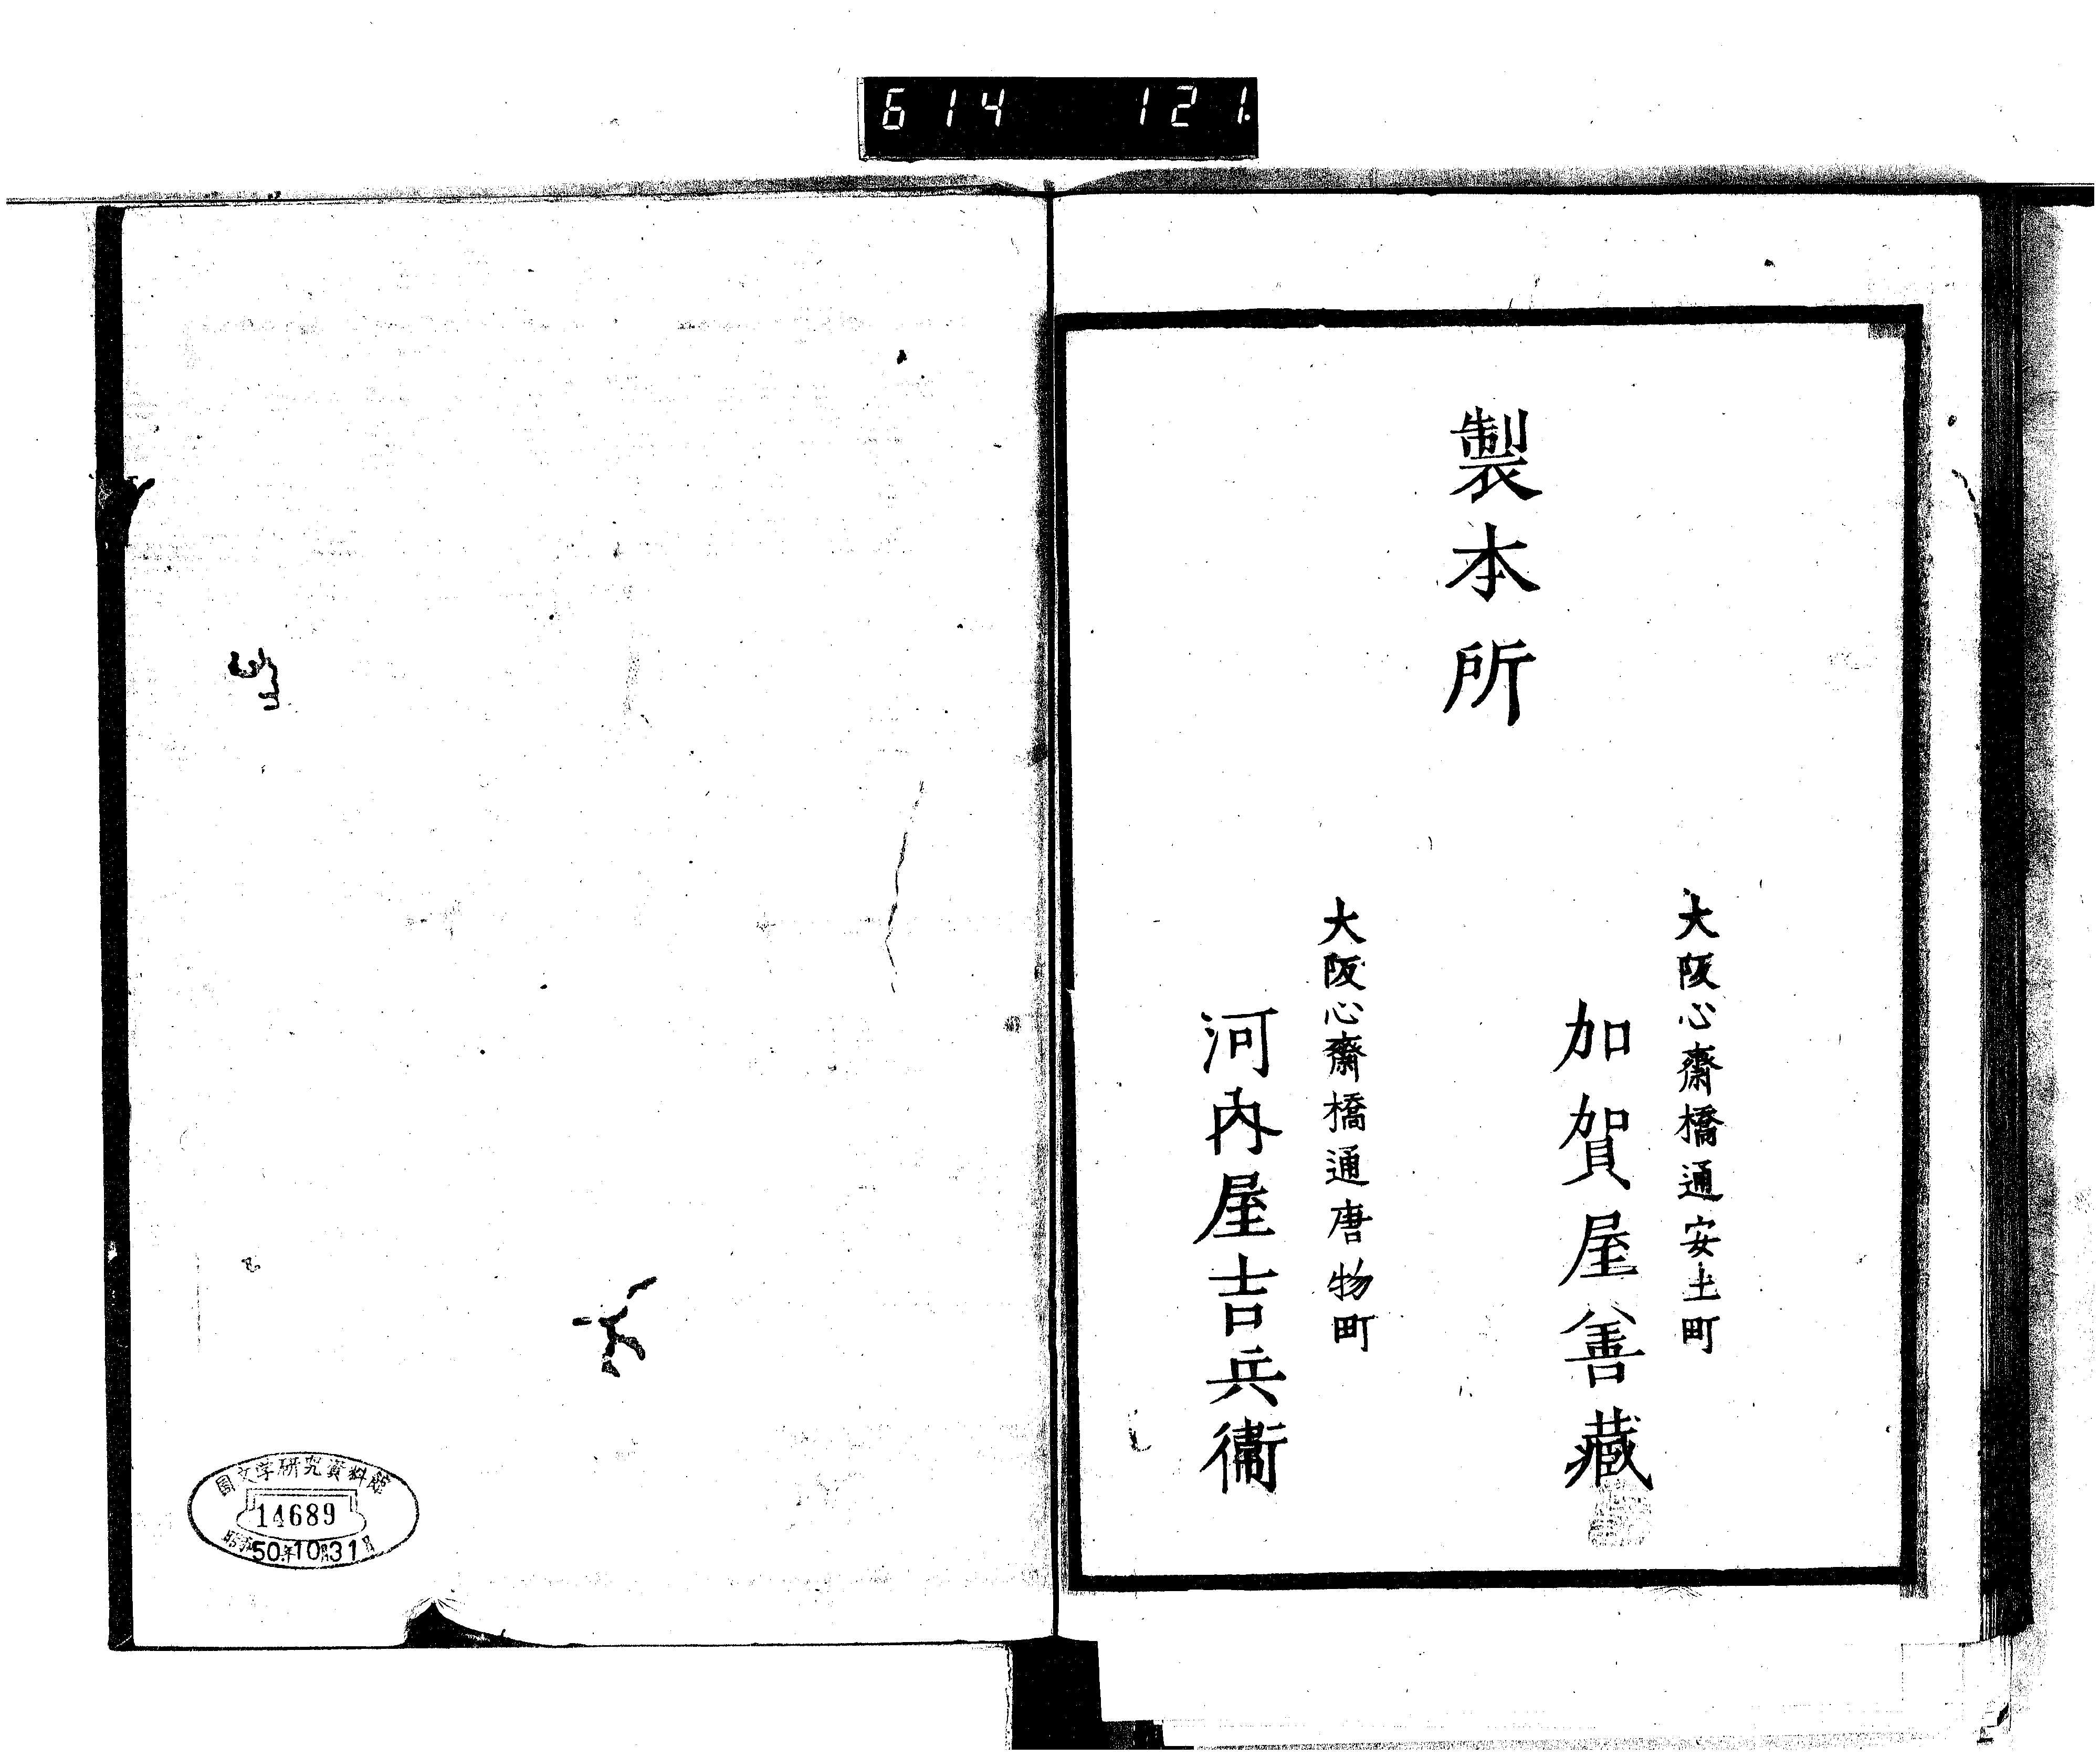 614 121.
製本所
大阪心齋橋通安土町
加賀屋善藏
大阪心齋橋通唐物町
河内屋吉兵衞
国文学研究資料館
14689
昭和50年10月31日